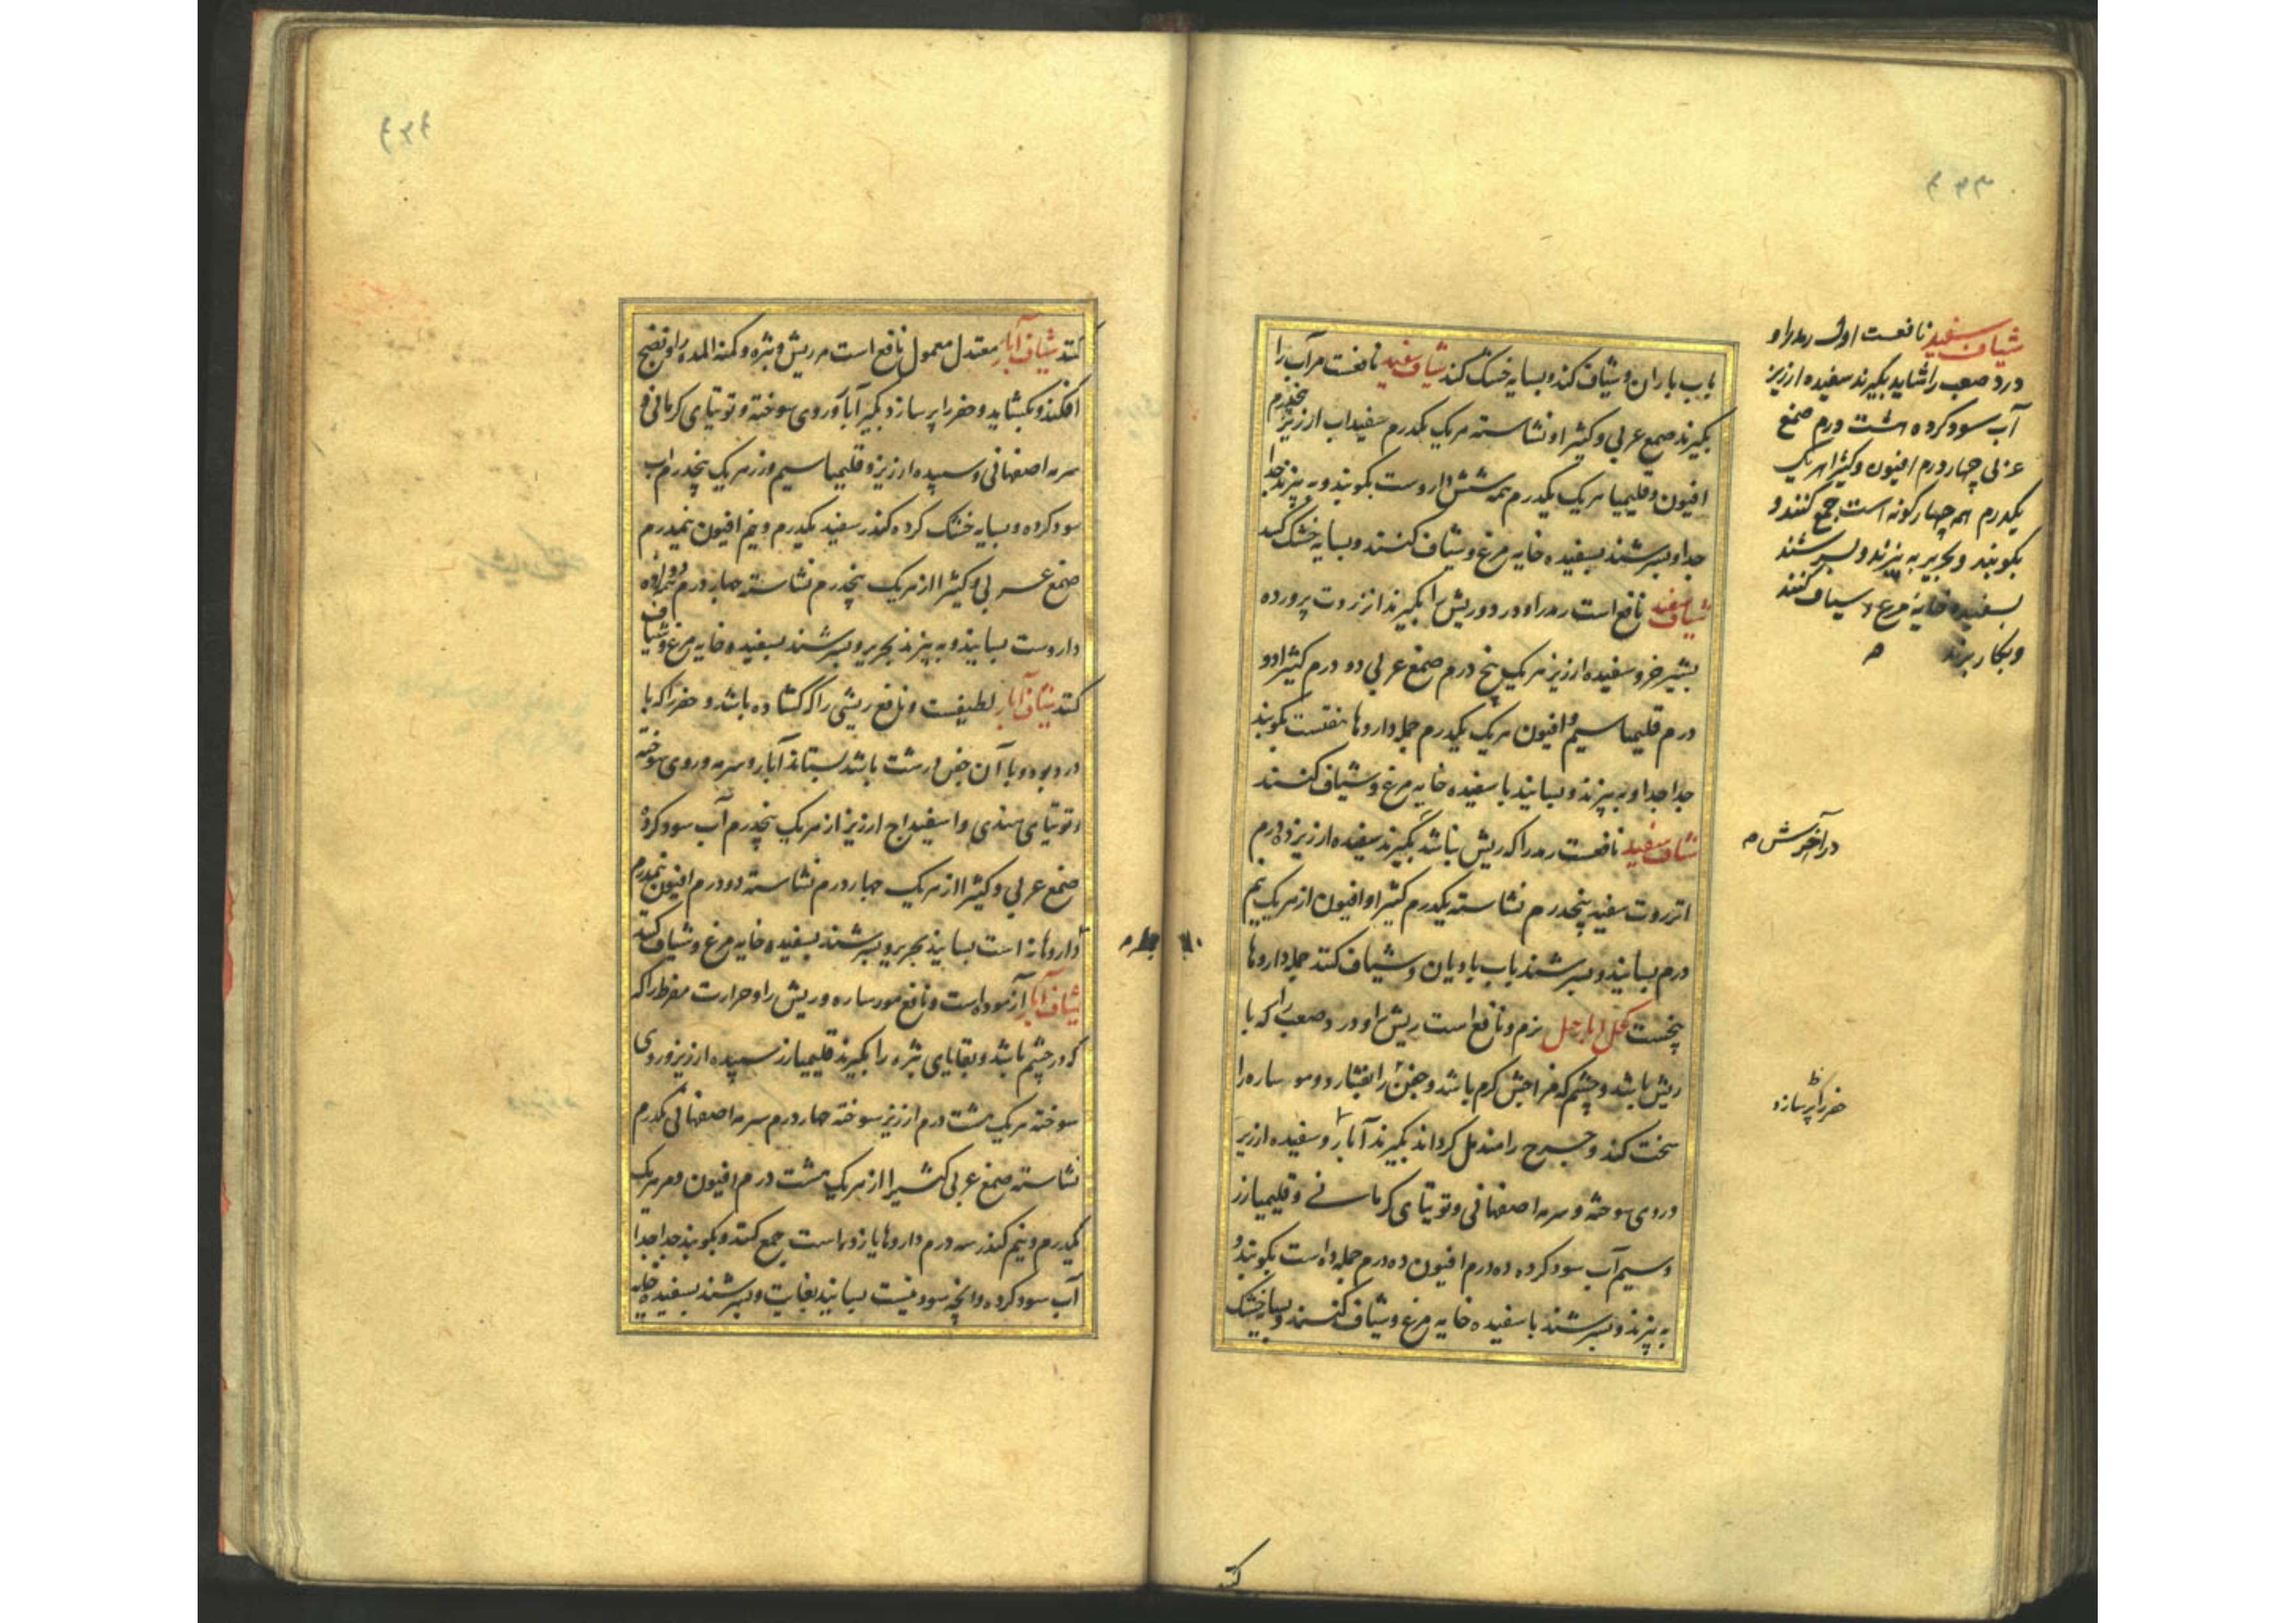 باب باران و شیاف کند و بسایه خشک کند شیاف سفید نافعست مر آب را
بگیرند صمغ عربی و کثیرا و نشاسته هریک یکدرم سفیداب ارزیز پنجدرم
افیون و قلیمیا هریک یکدرم همه شش داروست بکوبند و به بیزند جدا
جدا و بسرشند بسفیده خایه مرغ و شیاف کنند و بسایه خشک کنند
شیاف سفید نافع است رمد را و درد و ریش را بگیرند انزروت پرورده
بشیر خر و سفیده ارزیز هریک پنج درم صمغ عربی دو درم کثیرا دو
درم قلیمیا سیم و افیون هریک یکدرم جمله داروها هفتست بکوبند
جدا جدا و به بیزند و بسایند با سفیده خایه مرغ و شیاف کنند
شیاف سفید نافعست رمد را که ریش نباشد بگیرند سفیده ارزیز ده درم
انزروت سفید پنجدرم نشاسته یکدرم کثیرا و افیون از هریک نیم
درم بسایند و بسرشند باب بادیان و شیاف کنند جمله داروها
پنجست کحل ابارحل نرم و نافع است ریش را و درد صعب را که با
ریش باشد و چشم که مزاجش گرم باشد و جفن را بفشارد و مور ساره را
سخت کند و جرح را مندمل گرداند بگیرند آبار و سفیده ارزیز
و روی سوخته و سرمه اصفهانی و توتیای کرمانی و قلیمیا زر
و سیم آب سود کرده ده درم افیون ده درم جمله ده است بکوبند و
به بیزند و بسرشند با سفیده خایه مرغ و شیاف کنند و بسایه خشک
شیاف سفید نافعست اول رمد را و
درد صعب را شاید بگیرند سفیده ارزیز
آب سود کرده هشت درم صمغ
عربی چهار درم افیون و کثیرا هریک
یکدرم همه چهار گونه است جمع کنند و
بکوبند و بحریر به بیزند و بسرشند
بسفیده خایه مرغ و شیاف کنند
و بکار برند
در آخرش م
حفر را پر سازد
کنند
کنند شیاف آبار معتدل معمول نافع است مر ریش و بثره و کمنة المده را و نضج
افکند و بکشاید و حفر را پر سازد بگیر آبار و روی سوخته و توتیای کرمانی و
سرمه اصفهانی و سپیده ارزیز و قلیمیا سیم و زر هریک پنجدرم اب
سود کرده و بسایه خشک کرده کندر سفید یکدرم و نیم افیون نیمدرم
صمغ عربی و کثیرا از هریک پنجدرم نشاسته چهار درم
داروست بسایند و به بیزند بحریر و بسرشند بسفیده خایه مرغ و شیاف
کنند شیاف آبار لطیفست و نافع ریشی را که گشاده باشد و حفر را که با
درد بود و با آن جفن درشت باشد بستاند آبار و سرمه و روی سوخته
و توتیای هندی و اسفیداج ارزیز از هریک پنجدرم آب سود کرده
صمغ عربی و کثیرا از هریک چهار درم نشاسته دو درم افیون نیمدرم
داروها نه است بسایند بحریر و بسرشند بسفیده خایه مرغ و شیاف کنند
شیاف آبار آزموده است و نافع مورساره و ریش را و حرارت مفرط را که
که در چشم باشد و بقایای بثره را بگیرند قلیمیا زر سپیده ارزیز و روی
سوخته هریک هشت درم ارزیز سوخته چهار درم سرمه اصفهانی یکدرم
نشاسته صمغ عربی کثیرا از هریک هشت درم افیون و مر هریک
یکدرم و نیم کندر سه درم داروها یازده است جمع کنند و بکوبند جدا جدا
آب سود کرده و انچه سود نیست بسایند بغایت و بسرشند بسفیده خایه